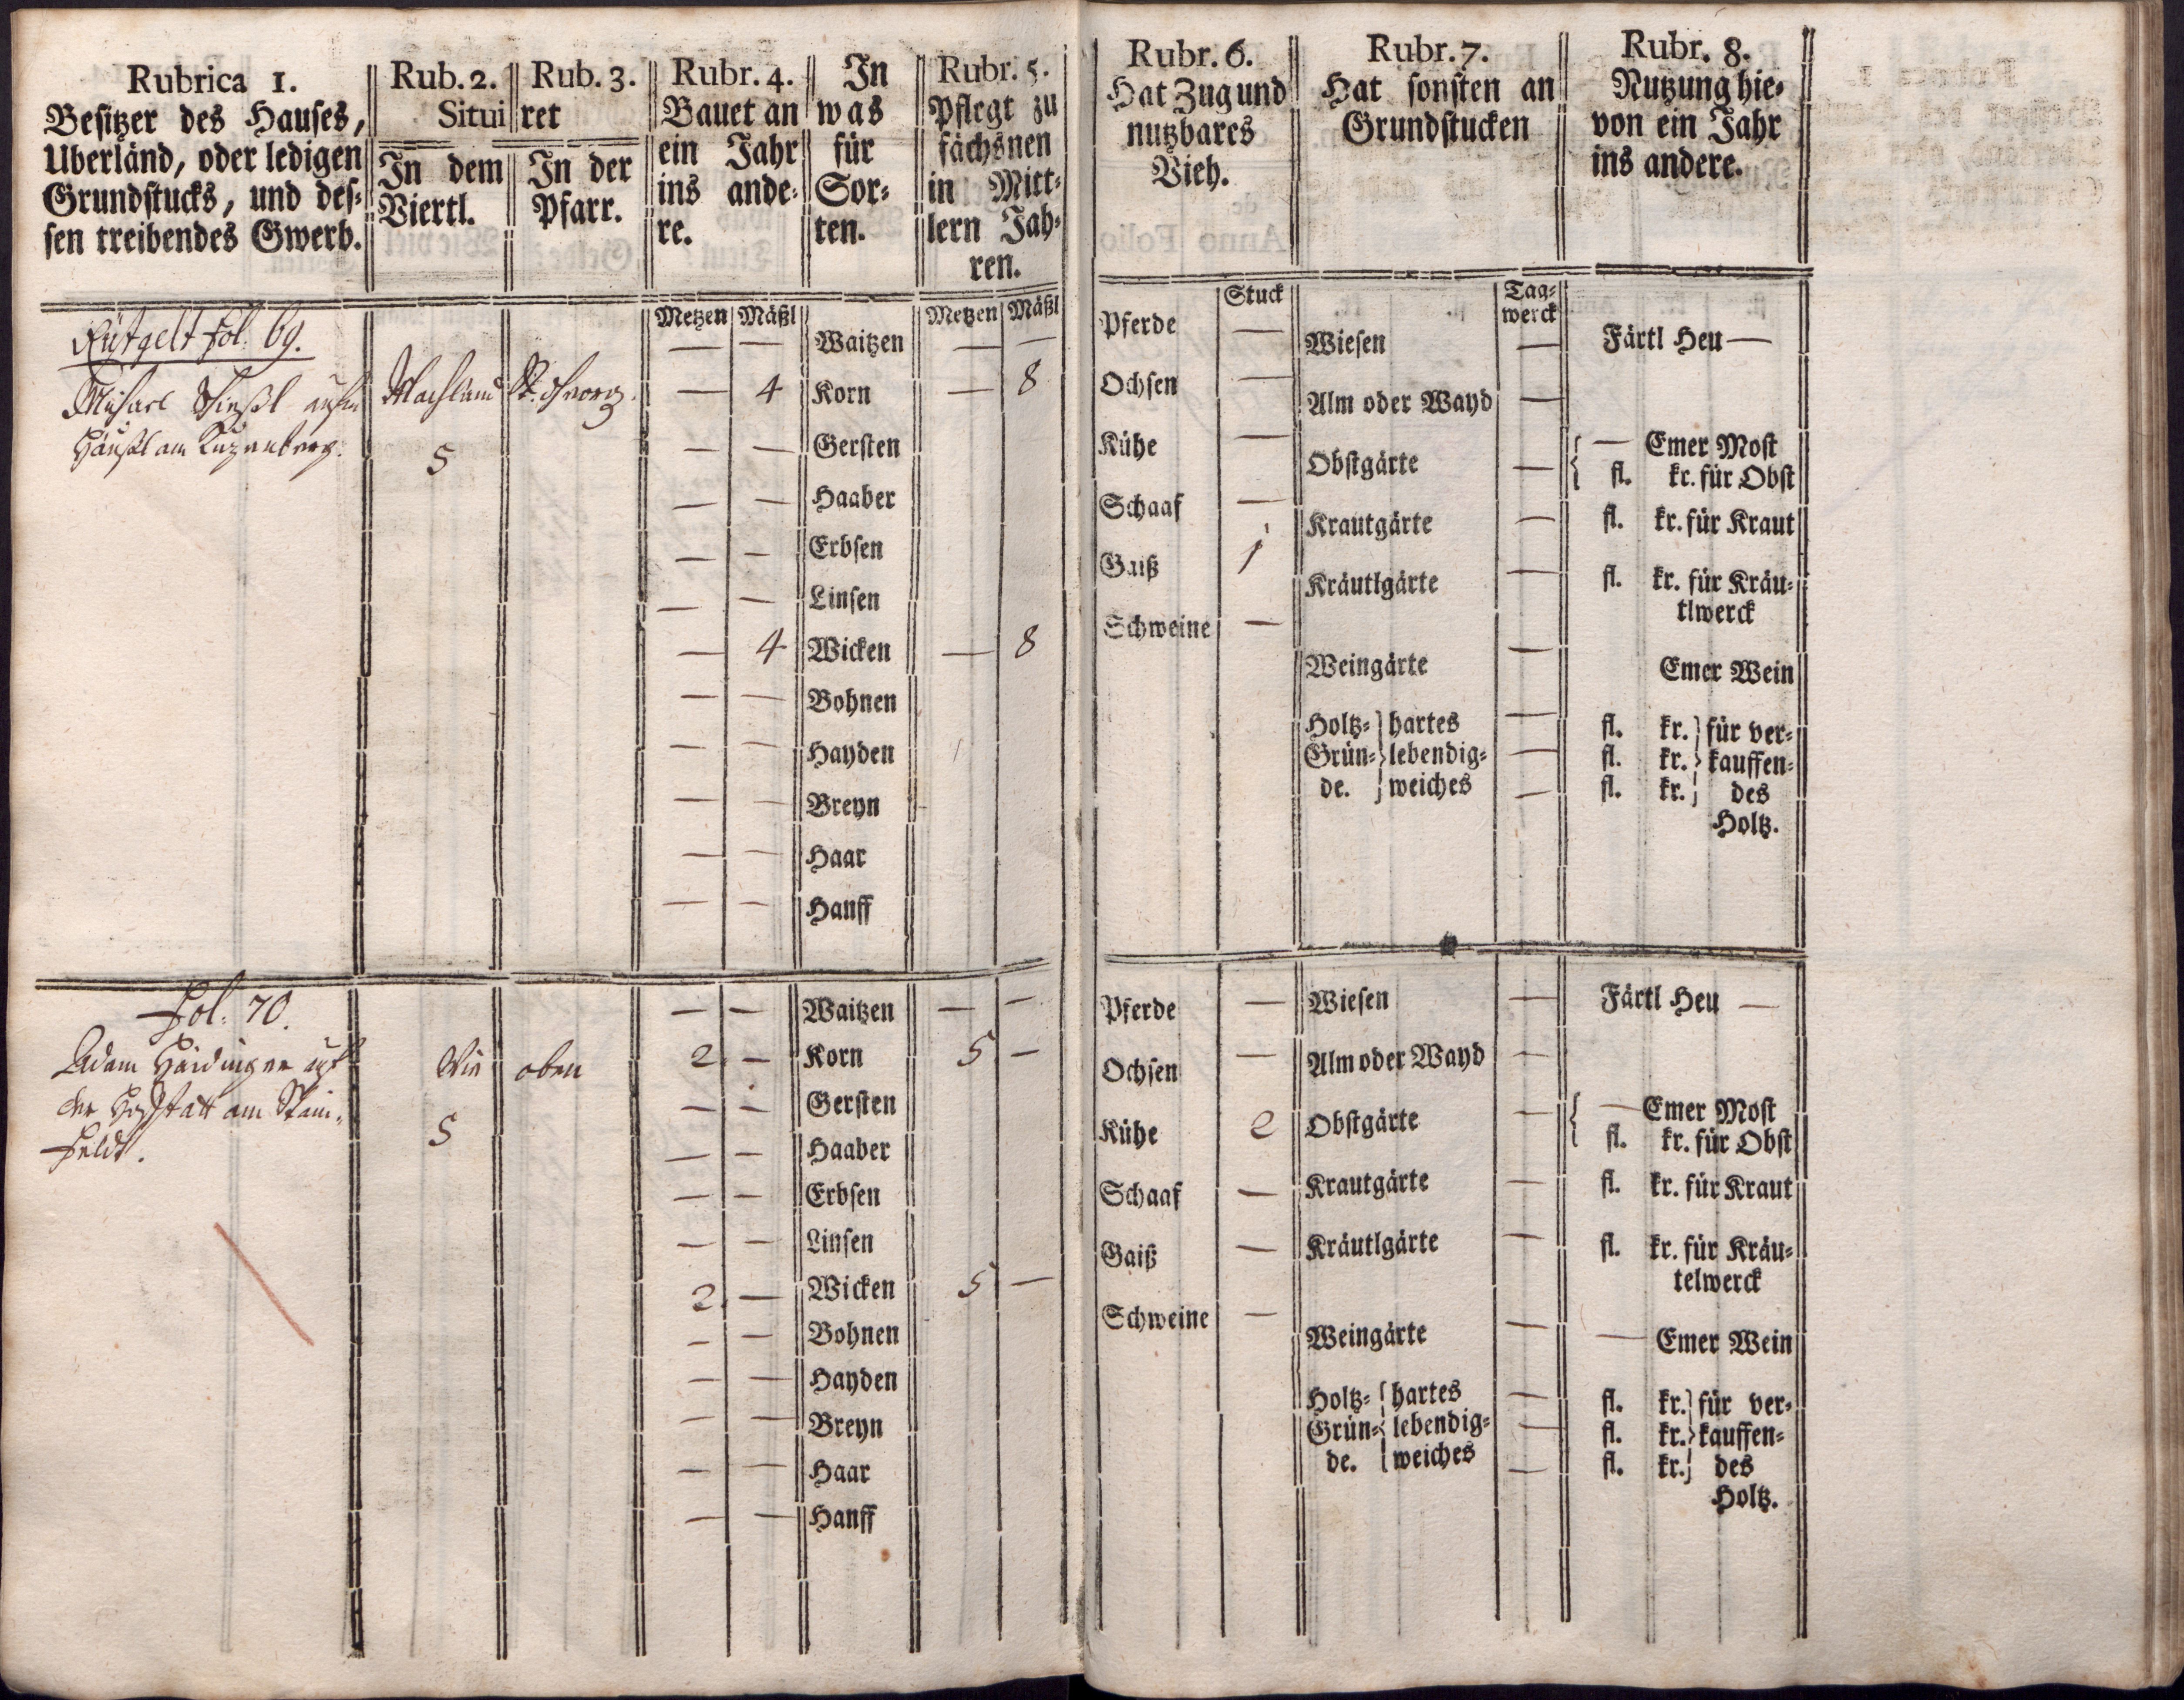 Rubrica 1.
Besitzer des Hauses,
Uberländ, oder ledigen
Grundstucks, und des-
sen treibendes Gwerb.
Rub. 2. Rub. 3.
Situiret
In dem
Viertl.
In der
Pfarr.
Rubr. 4.
Bauet an
ein Jahr
ins ande-
re.
In
was
für
Sor-
ten.
Rubr. 5.
Pflegt zu
fächsnen
in Mitt-
lern Jah-
ren.
Metzen Mäßl Metzen Mäßl
fol. 69.
Michael auf
Häußl am
Machland St. Georg.
5
— — Waitzen — —
— 4 Korn — 8
— — Gersten
— — Haaber
— — Erbsen
— — Linsen
— 4 Wicken — 8
— — Bohnen
— — Hayden
— — Breyn
— — Haar
— — Hanff
fol. 70.
Adam Haidinger auf
der Hofstatt am Stain-
feldt.
Wie oben
5
— — Waitzen — —
2. — Korn 5 —
— — Gersten
— — Haaber
— — Erbsen
— — Linsen
2. — Wicken 5 —
— — Bohnen
— — Hayden
— — Breyn
— — Haar
— — Hanff
Rubr. 6.
Hat Zug und
nutzbares
Vieh.
Rubr. 7.
Hat sonsten an
Grundstucken
Rubr. 8.
Nutzung hie-
von ein Jahr
ins andere.
Stuck
Tag-
werck
Pferde —
Ochsen —
Kühe —
Schaaf —
Gaiß 1
Schweine —
Wiesen —
Alm oder Wayd —
Obstgärte —
Krautgärte —
Kräutlgärte —
Weingärte —
Holtz- hartes —
Grün- lebendig- —
de. weiches —
Färtl Heu —
— Emer Most
fl. kr. für Obst
fl. kr. für Kraut
fl. kr. für Kräu-
tlwerck
Emer Wein
fl. kr. für ver-
fl. kr. kauffen-
fl. kr. des
Holtz.
Pferde —
Ochsen —
Kühe 2
Schaaf —
Gaiß —
Schweine —
Wiesen —
Alm oder Wayd —
Obstgärte —
Krautgärte —
Kräutlgärte —
Weingärte —
Holtz- hartes —
Grün- lebendig- —
de. weiches —
Färtl Heu —
— Emer Most
fl. kr. für Obst
fl. kr. für Kraut
fl. kr. für Kräu-
telwerck
— Emer Wein
fl. kr. für ver-
fl. kr. kauffen-
fl. kr. des
Holtz.